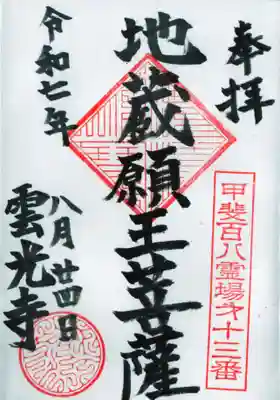 奉拝
甲斐百八霊場才十三番
地蔵願王菩薩
令和七年
八月廿四日
雲光寺